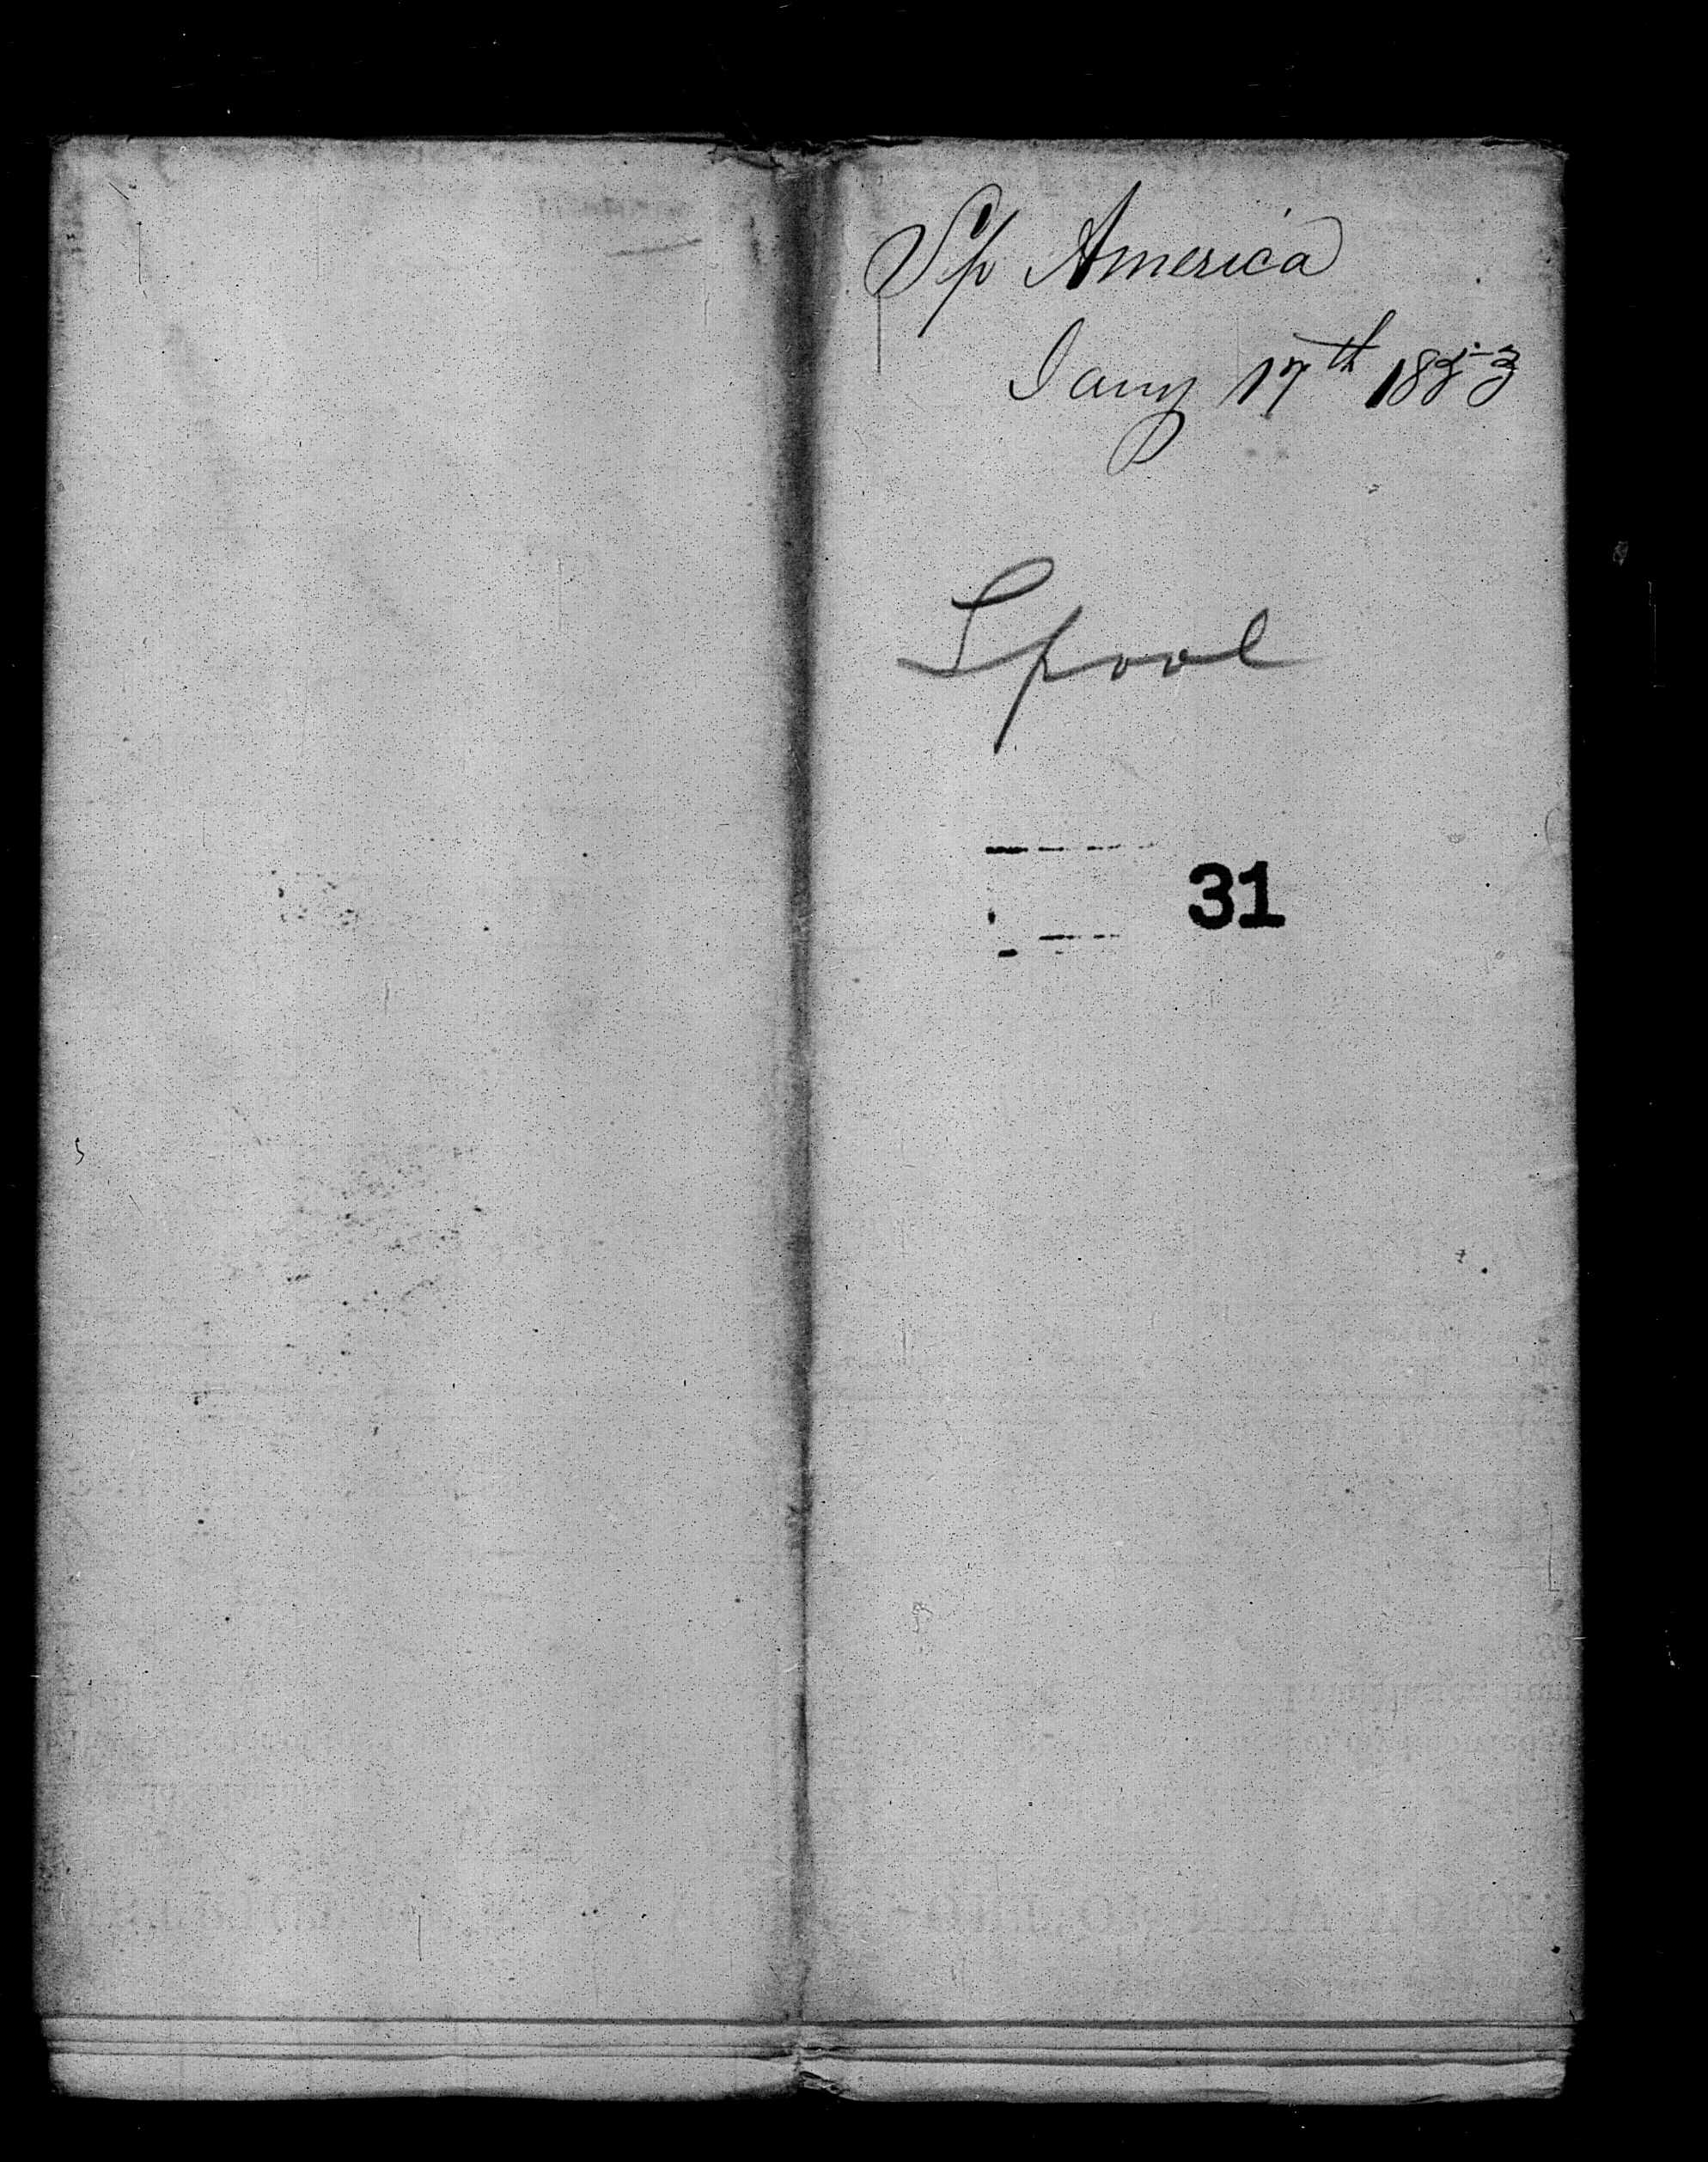 S/p America
Jany 17th 1853
Lpool
31